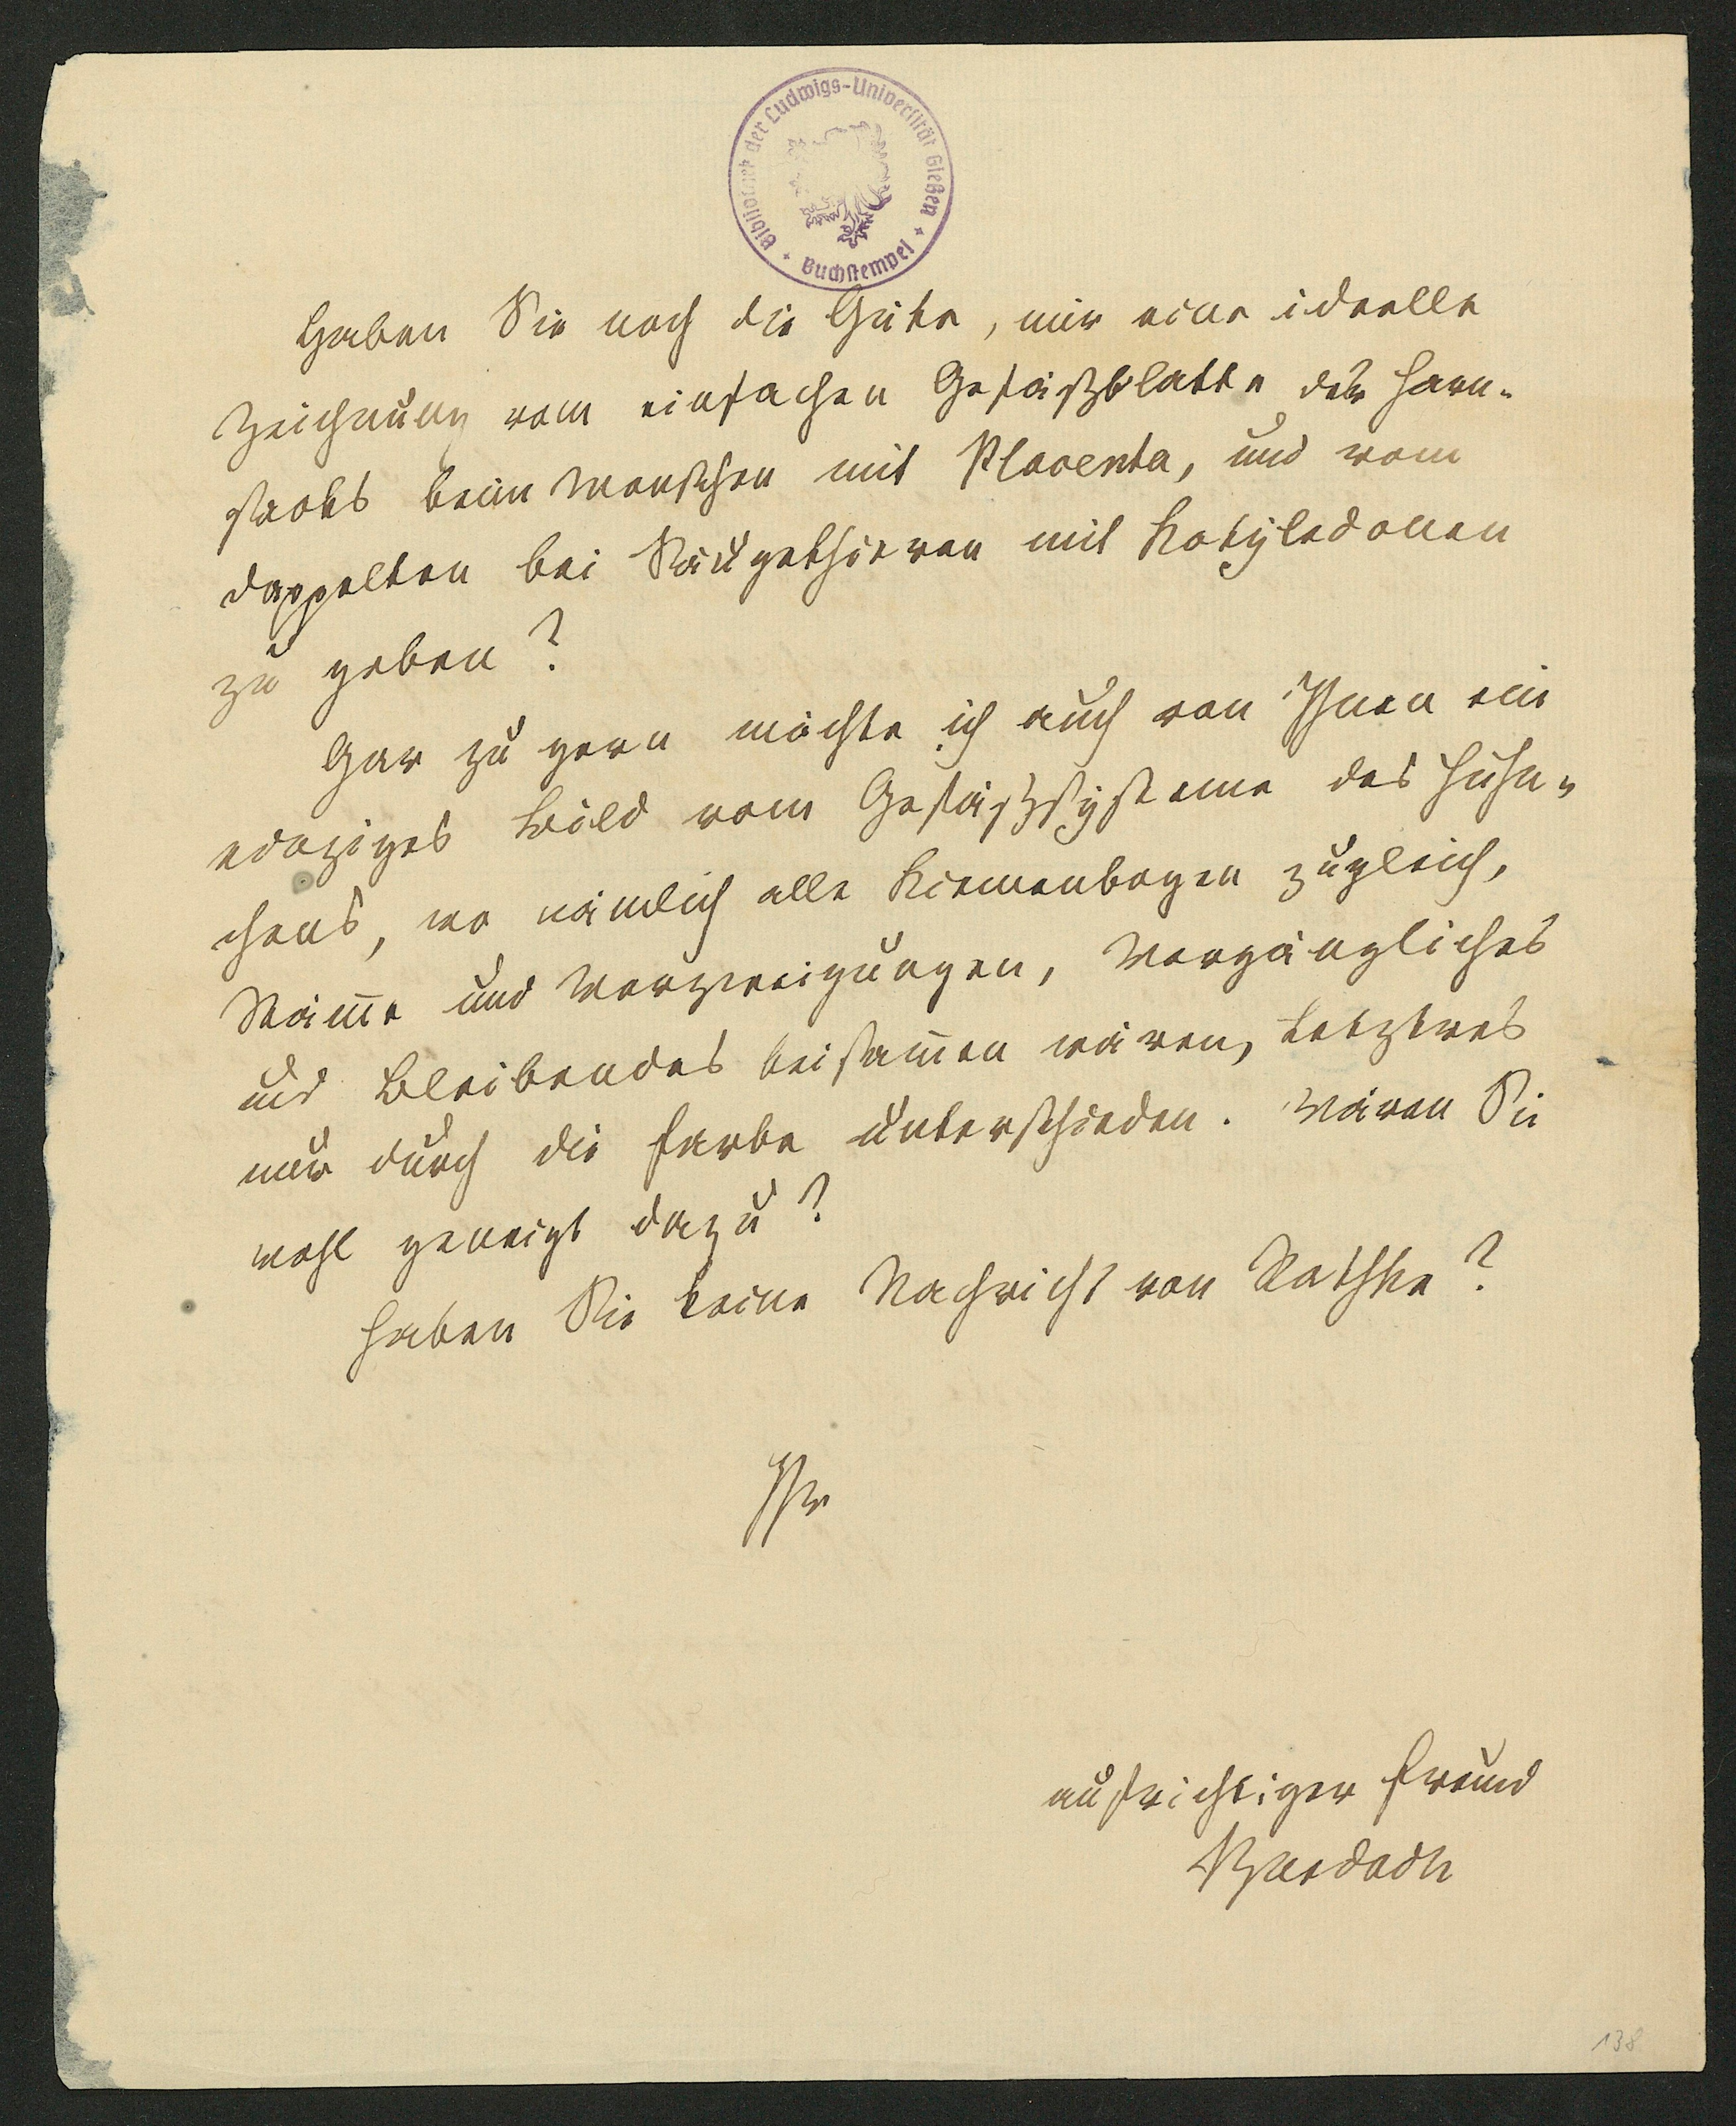 Bibliothek der Ludwigs-Universität Gießen
+ Buchstempel +
Haben Sie noch die Güte, mir eine ideelle
Zeichnung vom einfachen Gefäßblatte des Harn-
sacks beim Menschen mit Placenta, und vom
doppelten bei Säugethieren mit Kotyledonen
zu geben?
Gar zu gern möchte ich auch von Ihnen ein
Bild vom Gefäßsysteme des Hühn-
chens, wo nämlich alle Kiemenbogen zugleich,
Stäm̅e und Verzweigungen, Vergängliches
und Bleibendes beisam̅en wären, Letztres
nur durch die Farbe unterschieden. Wären Sie
wohl geneigt dazu?
Haben Sie keine Nachricht von Rathke?
Ihr
aufrichtiger Freund
Burdach
138